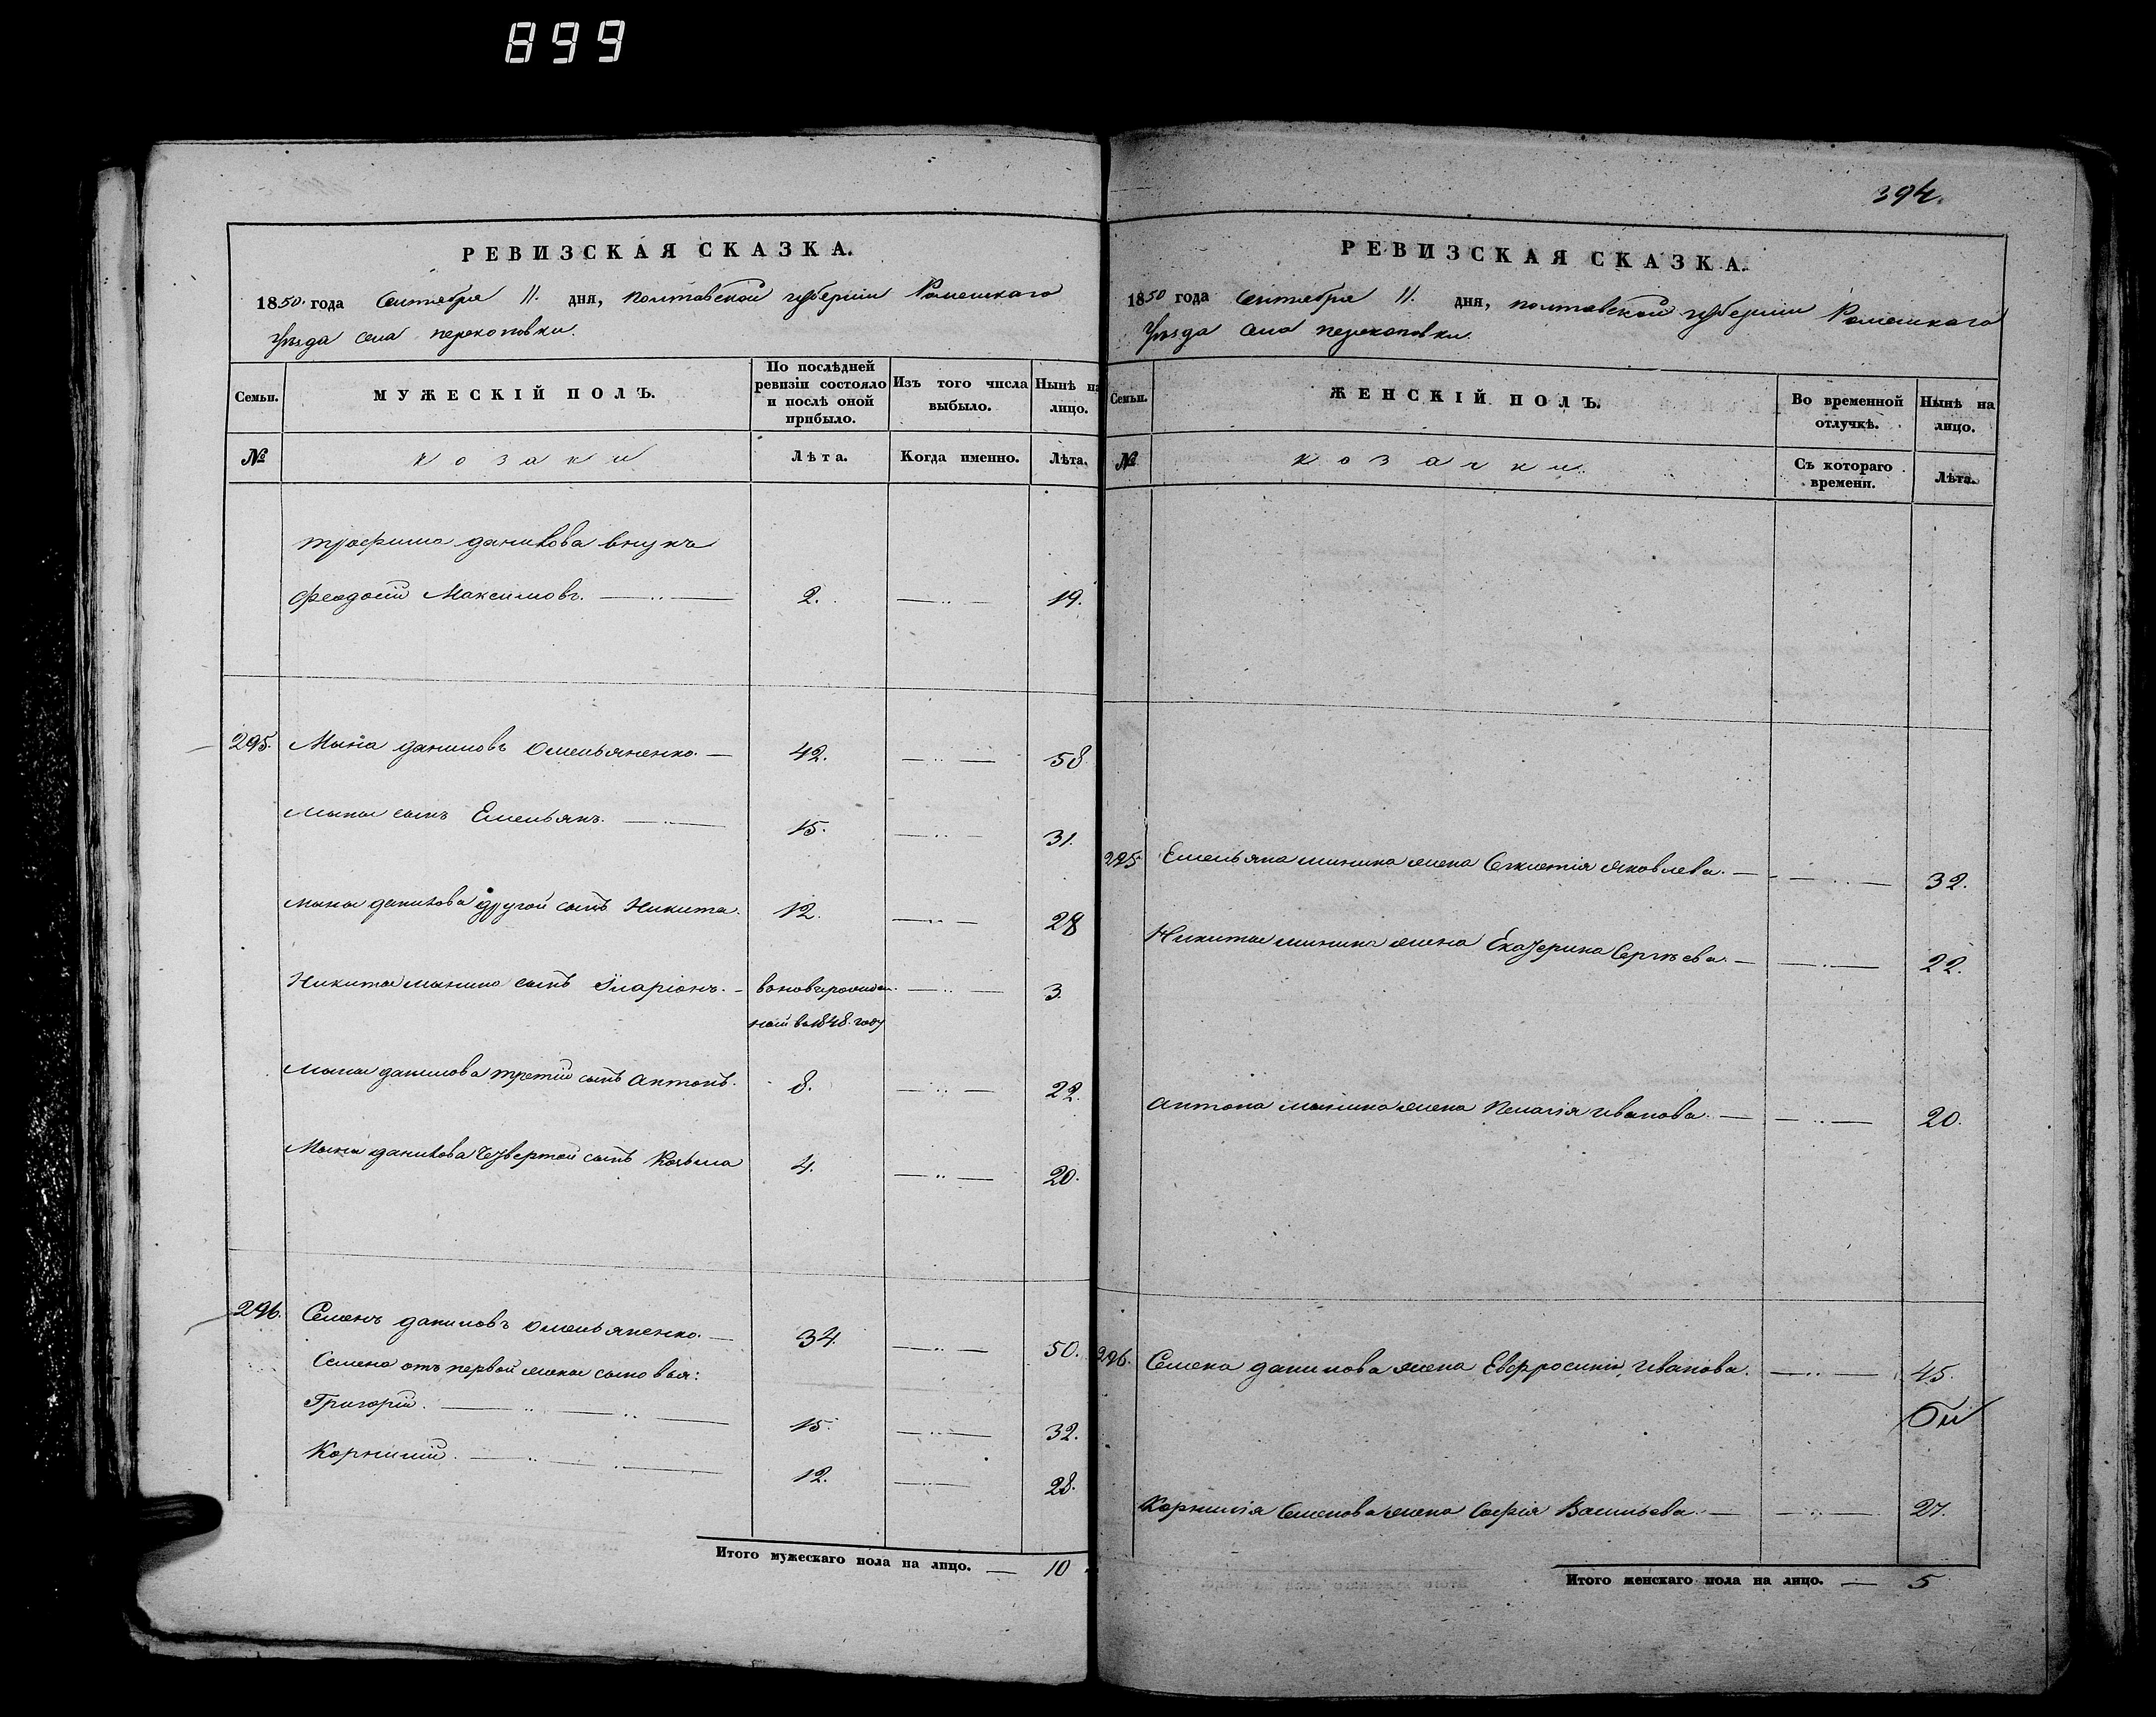 899
РЕВИЗСКАЯ СКАЗКА.
1850. года Сентября 11. дня, полтавской губернии Роменскаго
уѣзда села перекоповки.
Семьи. МУЖЕСКІЙ ПОЛЪ. По послѣдней ревизіи состояло и послѣ оной прибыло. Изъ того числа выбыло. Нынѣ на лицо.
№ козаки Лѣта. Когда именно. Лѣта.
трофима данилова внукъ
феодосій Максимовъ. 2. 19.
295. Мина даниловъ Омельяненко. 42. 58
мины сынъ Емельянъ. 15. 31.
мины данилова другой сынъ Никита. 12. 28
Никиты минина сынъ Іларіонъ. 3.
ной въ 1848. году
мины данилова третій сынъ антонъ. 8. 22.
Мины данилова Четвертой сынъ Козьма 4. 20.
296. Семенъ даниловъ Омельяненко. 34. 50.
Семена отъ первой жены сыновья:
Григорій. 15. 32.
Корнилій. 12. 28.
Итого мужескаго пола на лицо. 10
394.
РЕВИЗСКАЯ СКАЗКА.
1850 года Сентября 11. дня, полтавской губернии Роменскаго
уѣзда села перекоповки.
Семьи. ЖЕНСКІЙ ПОЛЪ. Во временной отлучкѣ. Нынѣ на лицо.
№ козачки. Съ котораго времени. Лѣта.
295 Емельяна минина жена Яковлева. 32.
Никиты минина жена Екатерина Сергѣева. 22.
антона минина жена Пелагія иванова. 20.
296. Семена данилова жена Евфросинія, иванова. 45.
Корнилія Семенова жена Софія Васильева. 27.
Итого женскаго пола на лицо. 5